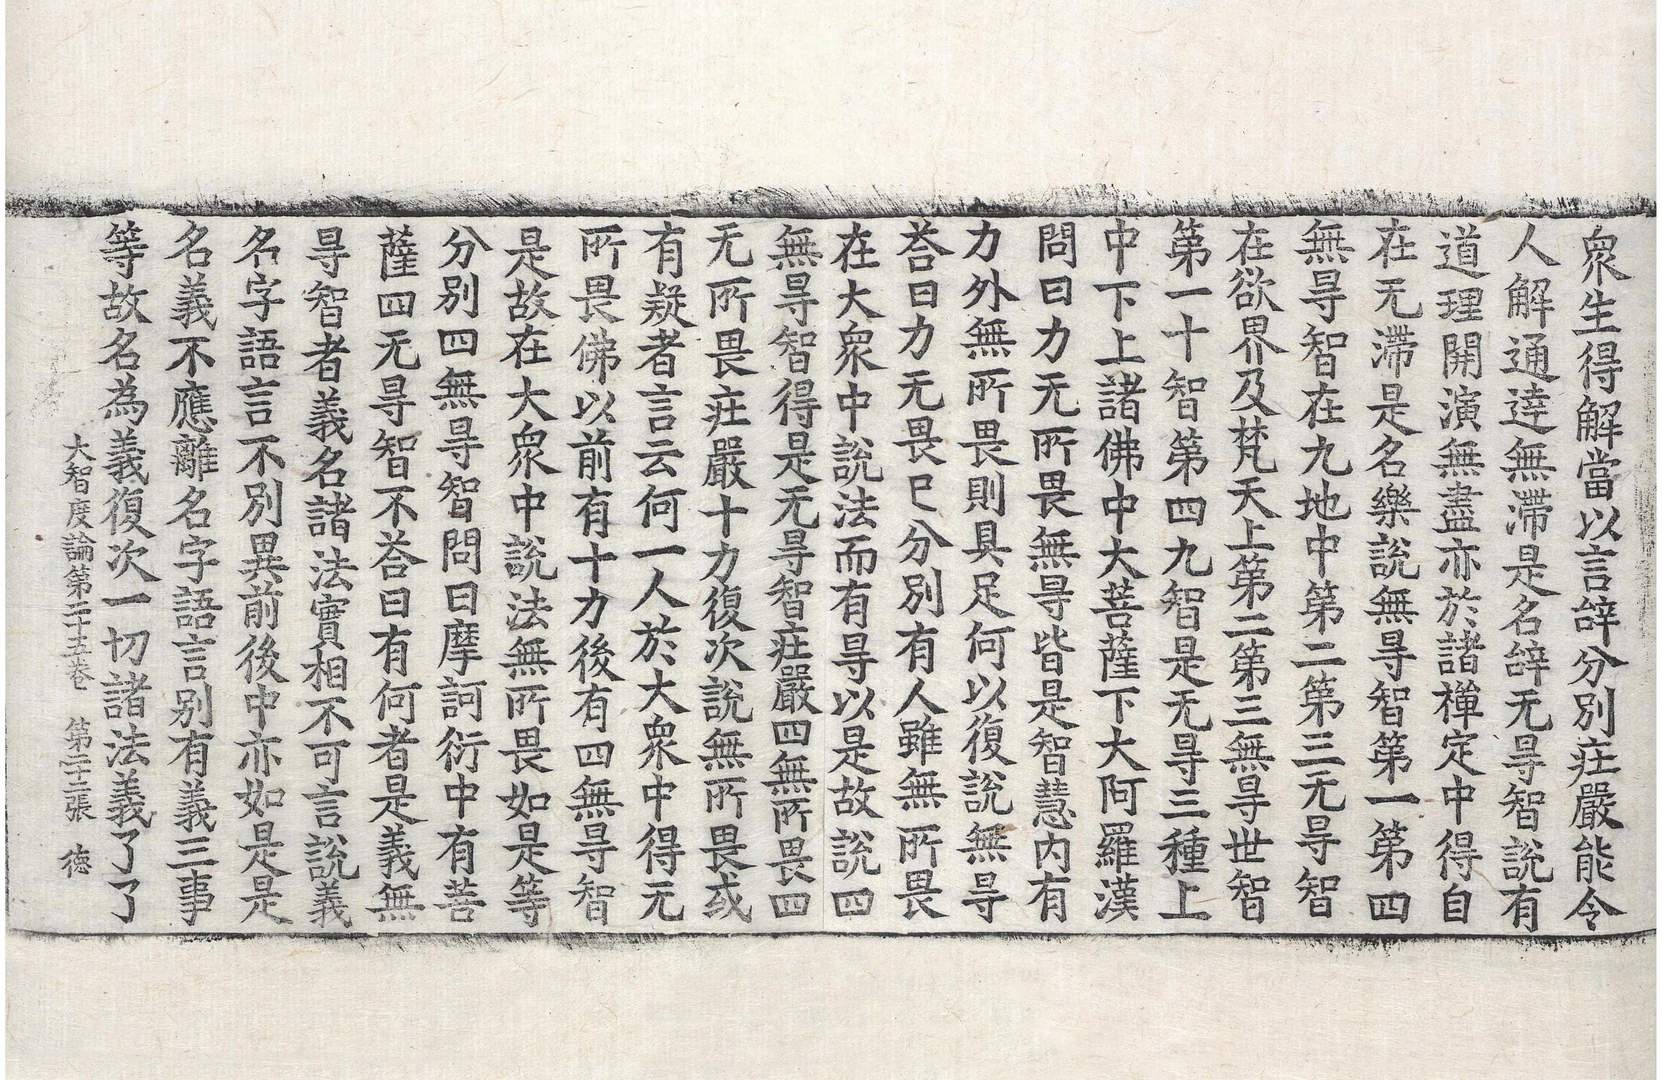 衆生得解當以言辝分別疘嚴能令
人解通達無滯是名辝无㝵智說有
道理開演無盡亦於諸禪定中得自
在无滯是名樂說無㝵智第一第四
無㝵智在九地中第二第三无㝵智
在欲界及梵天上第二第三無㝵世智
第一十智第四九智是无㝵三種上
中下上諸佛中大菩薩下大阿羅漢
問曰力无所畏無㝵皆是智慧內有
力外無所畏則具足何以復說無㝵
荅曰力无畏已分別有人雖無所畏
在大衆中說法而有㝵以是故說四
無㝵智得是无㝵智疘嚴四無所畏四
无所畏疘嚴十力復次說無所畏或
有疑者言云何一人於大衆中得无
所畏佛以前有十力後有四無㝵智
是故在大衆中說法無所畏如是等
分別四無㝵智問曰摩訶衍中有菩
薩四无㝵智不荅曰有何者是義無
㝵智者義名諸法實相不可言說義
名字語言不別異前後中亦如是是
名義不應離名字語言別有義三事
等故名為義復次一切諸法義了了
大智度論第二十五卷 第二十二張 德